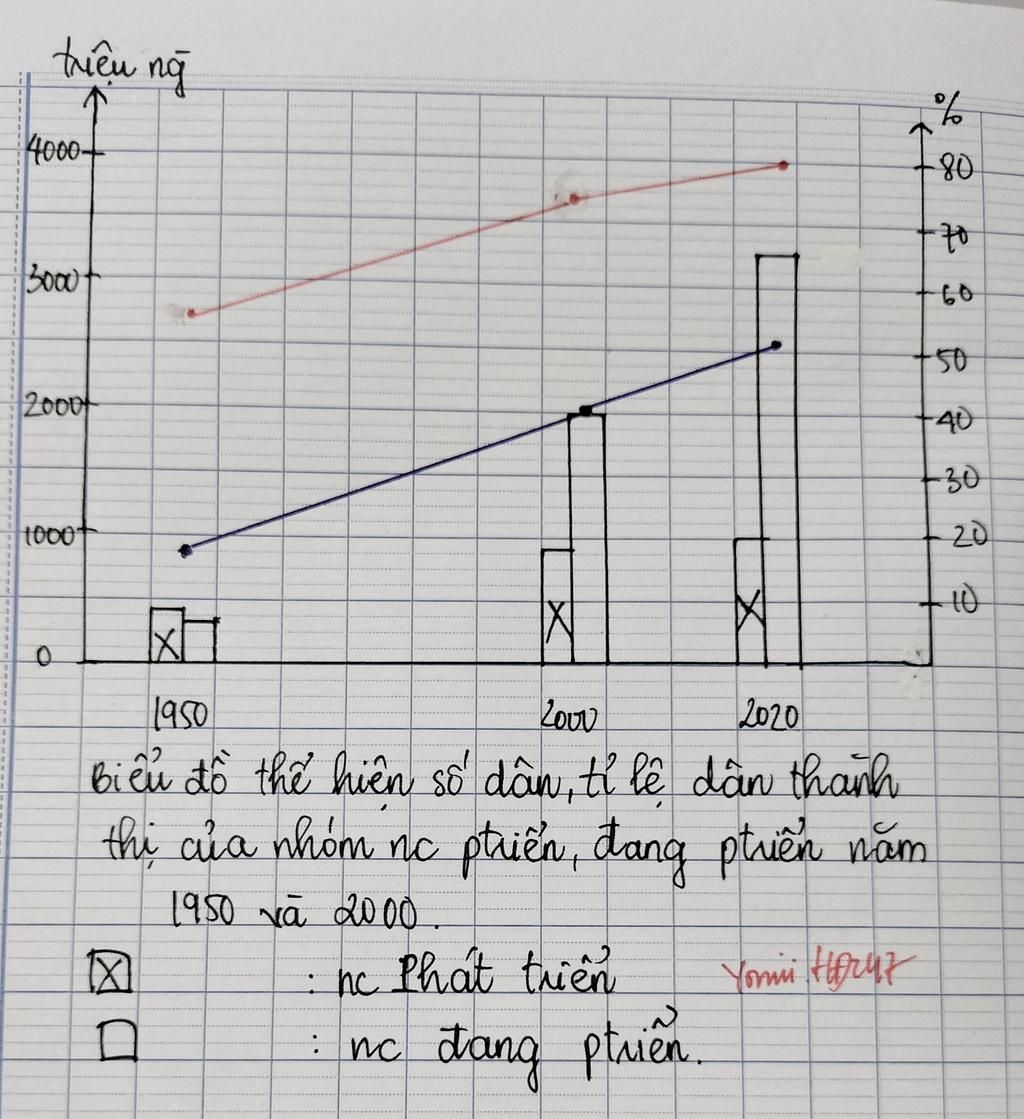 triệu nḡ
%
4000
80
70
3000
60
50
2000
40
30
1000
20
10
0
1950 2000 2020
Biểu đồ thể hiện số dân, tỉ lệ dân thành
thị của nhóm nc ptriển, đang ptriển năm
1950 và 2000.
X : nc Phát triển
: nc đang ptriển.